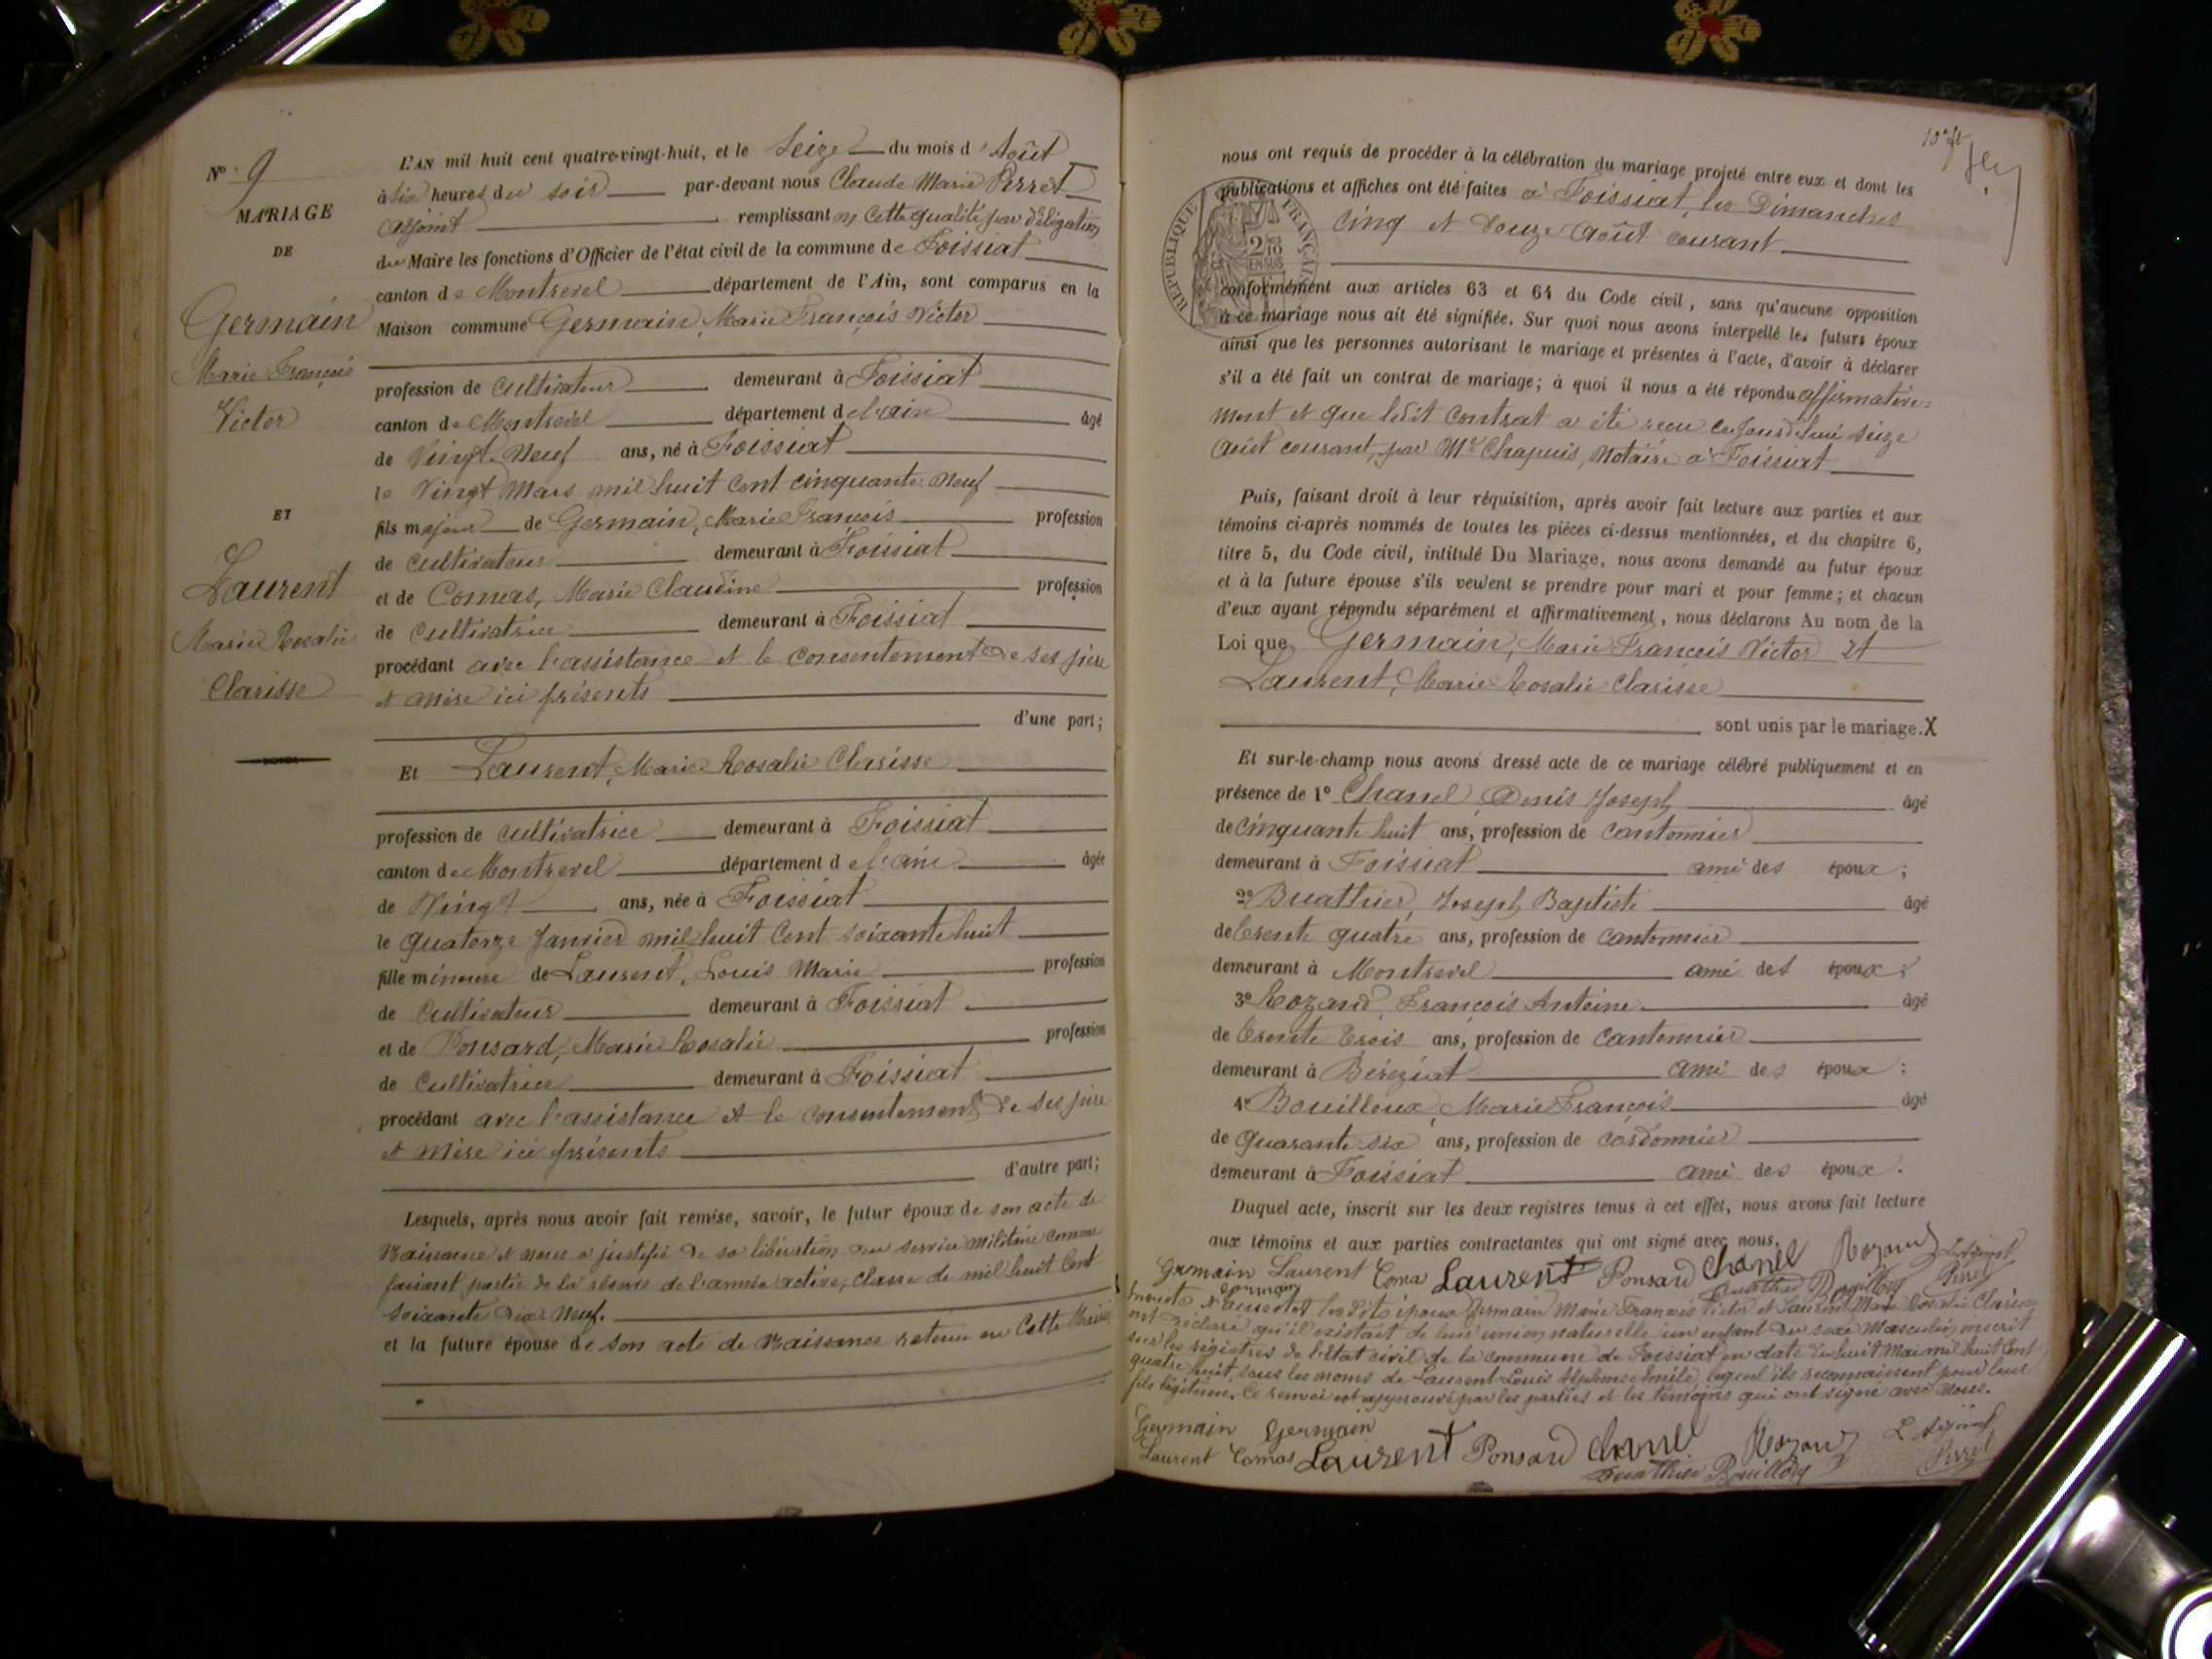 N° 9
MARIAGE
DE
Germain
Marie François
Victor
ET
Laurent
Marie Rosalie
Clarisse
L'AN mil huit cent quatre-vingt-huit, et le Seize du mois d'Août
à Six heures du soir par-devant nous Claude Marie Perret
adjoint remplissant en cette qualité par délégation
du Maire les fonctions d'Officier de l'état civil de la commune de Foissiat
canton de Montrevel département de l'Ain, sont comparus en la
Maison commune Germain, Marie François Victor
profession de cultivateur demeurant à Foissiat
canton de Montrevel département de l'ain âgé
de Vingt Neuf ans, né à Foissiat
le Vingt Mars mil huit cent cinquante Neuf
fils majeur de Germain, Marie François profession
de cultivateur demeurant à Foissiat
et de Comas, Marie Claudine profession
de cultivatrice demeurant à Foissiat
procédant avec l'assistance et le consentement de ses père
et mère ici présents
d'une part;
Et Laurent, Marie Rosalie Clarisse
profession de cultivatrice demeurant à Foissiat
canton de Montrevel département de l'ain âgée
de Vingt ans, née à Foissiat
le quatorze Janvier mil huit Cent soixante huit
fille mineure de Laurent, Louis Marie profession
de Cultivateur demeurant à Foissiat
et de Ponsard, Marie Rosalie profession
de Cultivatrice demeurant à Foissiat
procédant avec l'assistance et le consentement de ses père
et mère ici présents
d'autre part;
Lesquels, après nous avoir fait remise, savoir, le futur époux de son acte de
Naissance et nous a justifié de sa libération du service militaire comme
faisant partie de la réserve de l'armée active, classe de mil huit Cent
soixante dix Neuf.
et la future épouse de son acte de Naissance retenu en Cette Mairie
10e ft
nous ont requis de procéder à la célébration du mariage projeté entre eux et dont les
publications et affiches ont été faites à Foissiat, les Dimanches
Cinq et Douze Août courant
RÉPUBLIQUE FRANÇAISE
2/10 EN SUS
conformément aux articles 63 et 64 du Code civil, sans qu'aucune opposition
à ce mariage nous ait été signifiée. Sur quoi nous avons interpellé les futurs époux
ainsi que les personnes autorisant le mariage et présentes à l'acte, d'avoir à déclarer
s'il a été fait un contrat de mariage; à quoi il nous a été répondu affirmative=
ment et que ledit contrat a été reçu ce jourd'hui seize
Août courant, par Me Chapuis, Notaire à Foissiat
Puis, faisant droit à leur réquisition, après avoir fait lecture aux parties et aux
témoins ci-après nommés de toutes les pièces ci-dessus mentionnées, et du chapitre 6,
titre 5, du Code civil, intitulé Du Mariage, nous avons demandé au futur époux
et à la future épouse s'ils veulent se prendre pour mari et pour femme; et chacun
d'eux ayant répondu séparément et affirmativement, nous déclarons Au nom de la
Loi que Germain, Marie François Victor et
Laurent, Marie Rosalie Clarisse
sont unis par le mariage. X
Et sur-le-champ nous avons dressé acte de ce mariage célébré publiquement et en
présence de 1° Chanel, Denis Joseph âgé
de cinquante huit ans, profession de cantonnier
demeurant à Foissiat ami des époux;
2° Buathier, Joseph Baptiste âgé
de trente quatre ans, profession de cantonnier
demeurant à Montrevel ami des époux;
3° Rozand, François Antoine âgé
de trente trois ans, profession de cantonnier
demeurant à Béréziat ami des époux;
4° Bouilloux, Marie François âgé
de quarante six ans, profession de cordonnier
demeurant à Foissiat ami des époux.
Duquel acte, inscrit sur les deux registres tenus à cet effet, nous avons fait lecture
aux témoins et aux parties contractantes qui ont signé avec nous.
Germain Laurent Coma Laurent Ponsard Chanel Rozand L'adjoint
Germain Buathier Bouilloux Perret
les dits époux Germain Marie François Victor et Laurent Marie Rosalie Clarisse
ont déclaré qu'il existait de leur union naturelle un enfant du sexe Masculin, inscrit
sur les registres de l'état civil de la commune de Foissiat en date du huit Mai mil huit Cent
quatre huit, sous les noms de Laurent Louis Alphonse Emile, lequel ils reconnaissent pour leur
fils légitime. Ce renvoi est approuvé par les parties et les témoins qui ont signé avec nous.
Germain Germain
Laurent Comas Laurent Ponsard Chanel Rozand L'adjoint
Buathier Bouilloux Perret